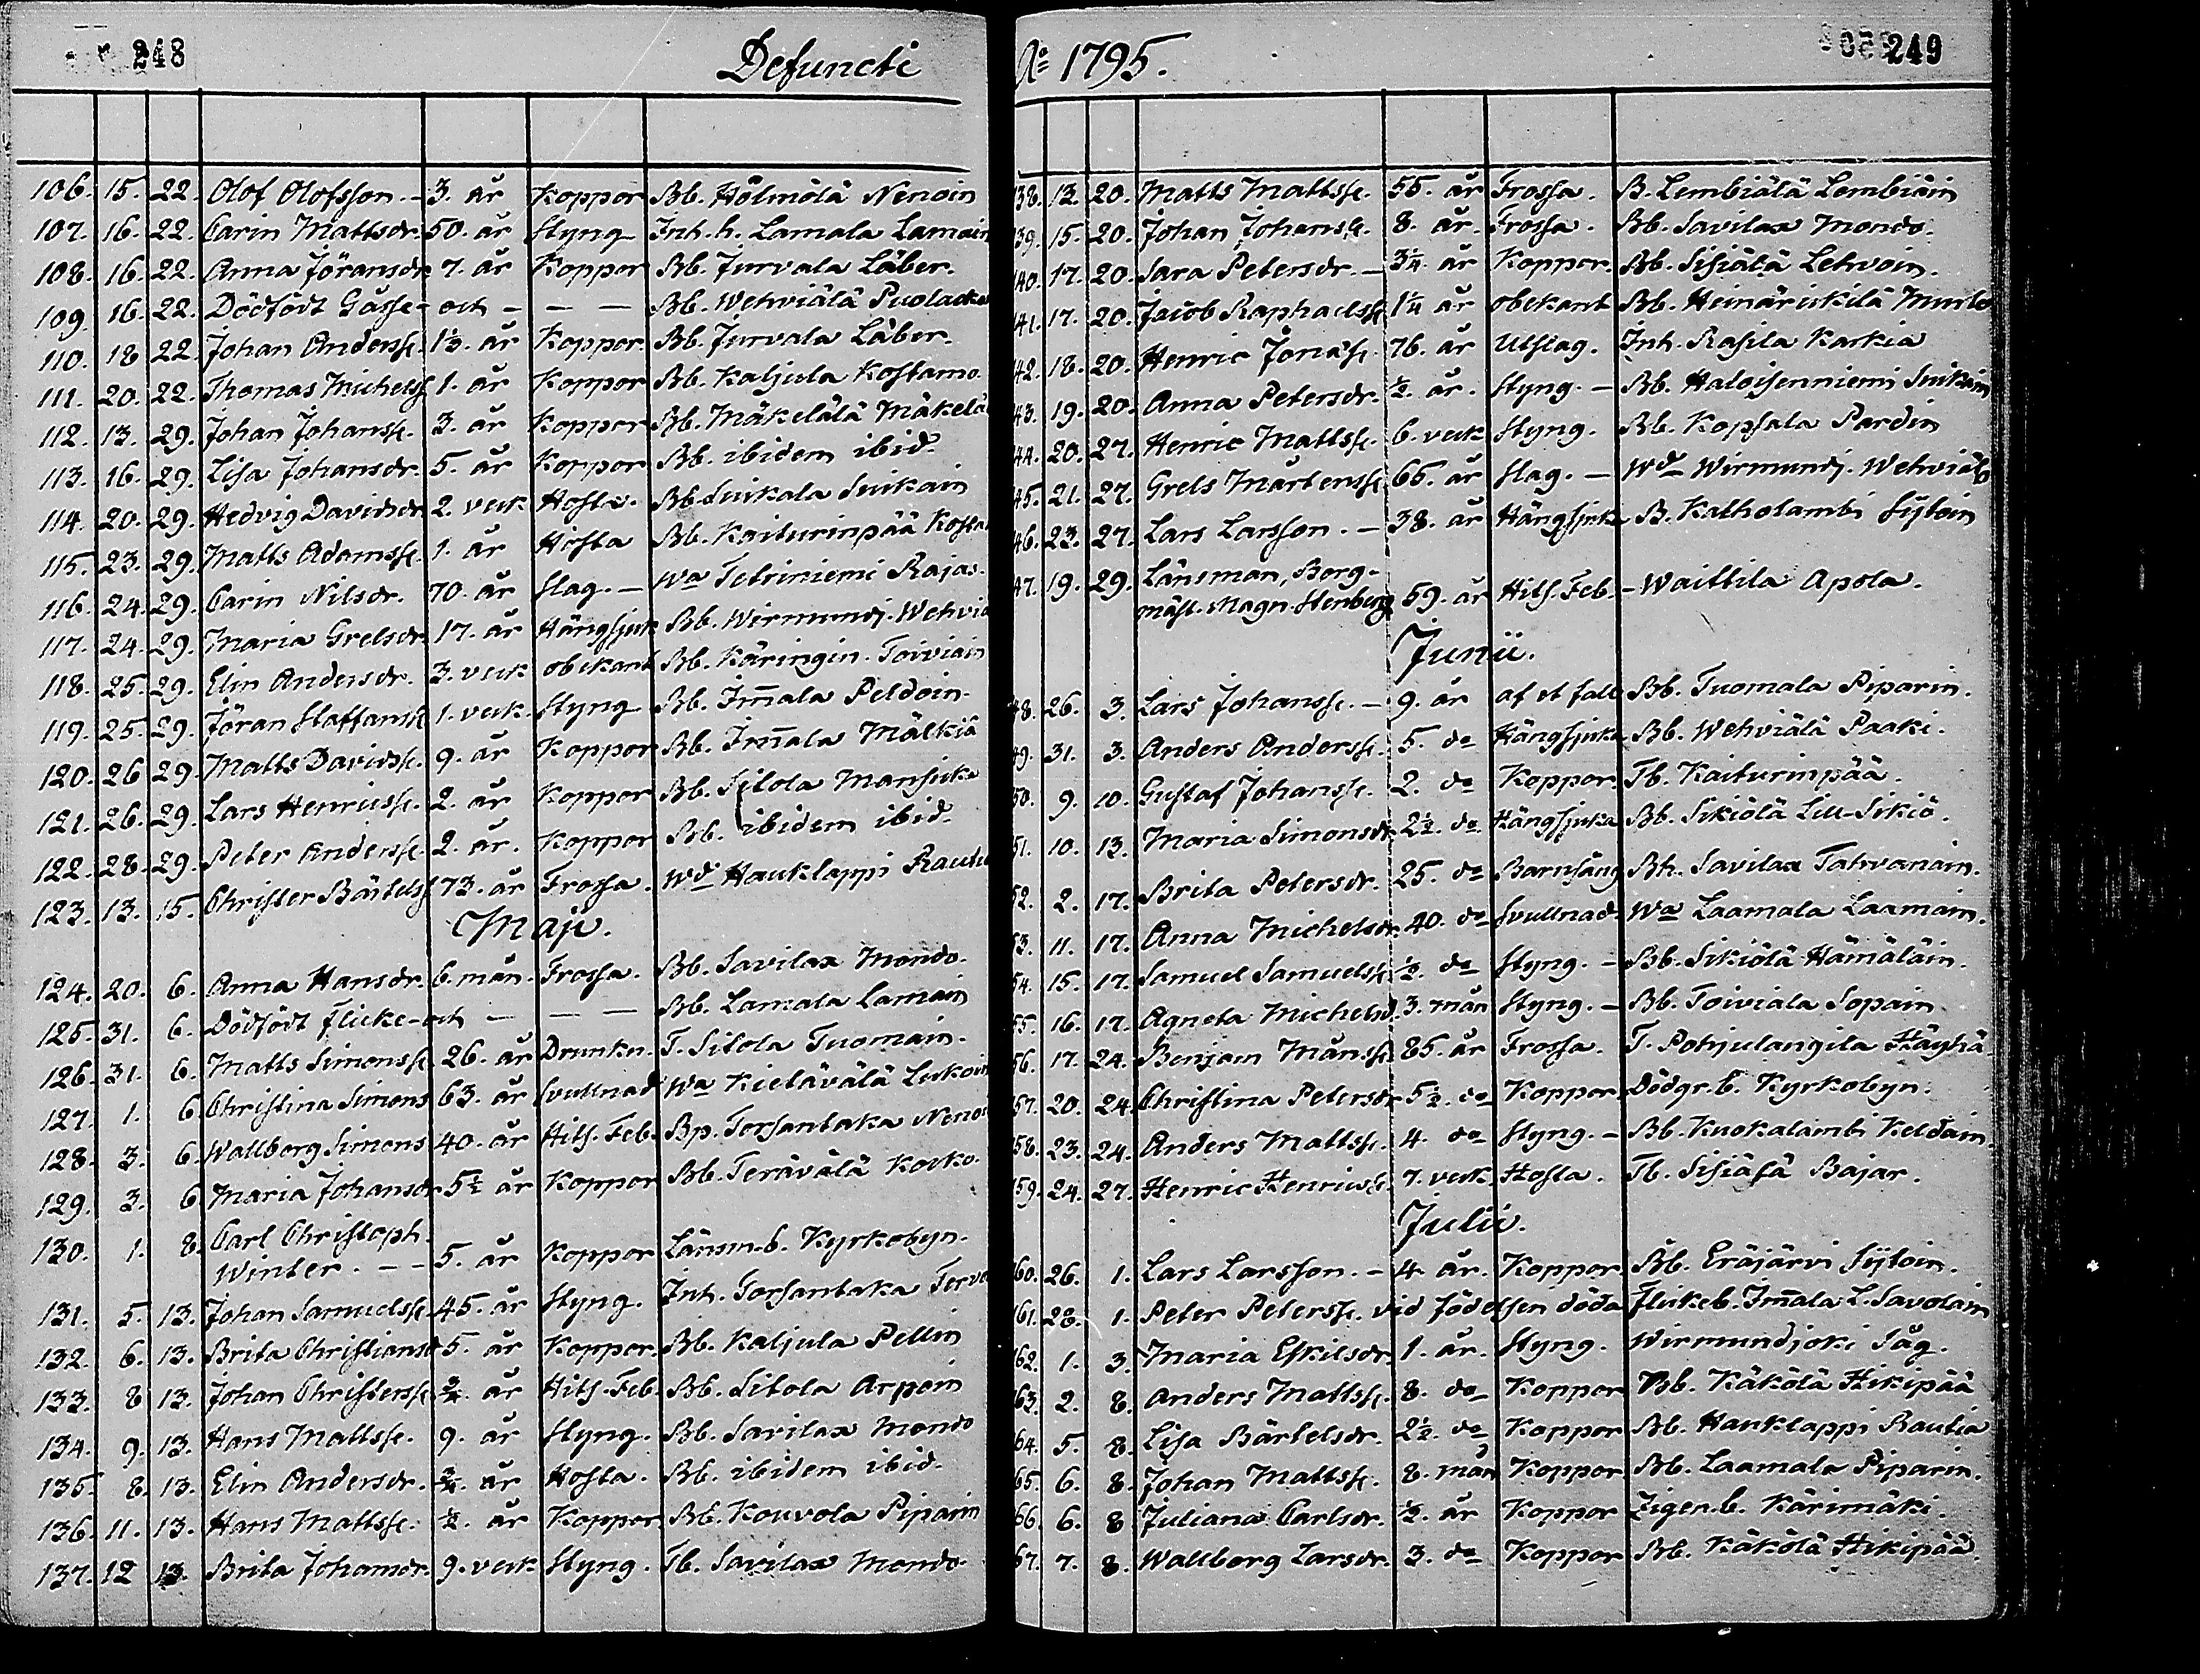 248
Defuncti
106. 15. 22. Olof Olofsson. - 3. år Koppor Bb. Hölmölä Nenoin
107. 16. 22. Carin Mattsdr. 50. år Styng Inh. h. Lamala Lamain
108. 16. 22. Anna Jöransdr 7. år Koppor Bb. Jurvala Läber.
109. 16. 22. Dödfödt Gåsse- och - - - Bb. Wehviälä Puolacka
110. 18 22. Johan Anderss. 1½. år Koppor. Bb. Jurvala Läber.
111. 20. 22. Thomas Michelss 1. år Koppor Bb. Kaljula Kostamo
112. 13. 29. Johan Johanss. 3. år Koppor Bb. Mäkelälä Mäkelä
113. 16. 29. Lisa Johansdr. 5. år Koppor Bb. ibidem ibid.
114. 20. 29. Hedvig Davidsdr 2. veck Hosta. Bb. Suikala Suikain
115. 23. 29. Matts Adamss. 1. år Hosta Bb. Kaiturinpää Kosta
116. 24. 29. Carin Nilsdr. 70. år Slag. - Wa Tetriniemi Rajas.
117. 24. 29. Maria Grelsdr. 17. år Hängsjuk Bb. Wirmundj. Wehviä
118. 25. 29. Elin Andersdr. 3. veck obekant Bb. Käringin. Toiviain
119. 25. 29. Jöran Staffanss 1. veck. Styng Bb. Im̄ala Peldoin.
120. 26 29. Matts Davidss. 9. år Koppor Bb. Im̄ala Mälkiä
121. 26. 29. Lars Henricss. 2. år Koppor Bb. Sitola Mansicka
122. 28. 29. Peter Anderss. 2. år. Koppor Bb. ibidem ibid.
123. 13. 15. Christer Bärtelss 73. år Frossa. Wd Hauklappi Rautia
Maji.
124. 20. 6. Anna Hansdr. 6. mån. Frossa. Bb. Savilax Mondo.
125. 31. 6. Dödfödt flicke-och - - - Bb. Lamala Lamain
126. 31. 6. Matts Simonss. 26. år Drunkn. T. Sitola Tuomain.
127. 1. 6 Christina Simons 63. år Svullnad Wa Kielävälä Lukoin
128. 3. 6. Wallborg Simons 40. år Hits. Feb. Bp. Torsantaka Nenoi
129. 3. 6 Maria Johansdr 5½ år Koppor Bb. Terävälä Kocko.
130. 1. 8. Carl Christoph.
Winter. - - 5. år Koppor Länsm. b. Kyrkobyn.
131. 5. 13. Johan Samuelss. 45. år Styng. Inh. Torsantaka Terva
132. 6. 13. Brita Christiansd 5. år Koppor. Bb. Kaljula Pellin
133. 8 13. Johan Christerss. ¾. år Hits. Feb. Bb. Sitola Arpoin
134. 9. 13. Hans Mattss. 9. år Styng. Bb. Savilax Mondo
135. 8. 13. Elin Andersdr. ¾. år Hosta. Bb. ibidem ibid.
136. 11. 13. Hans Mattss. ½. år Koppor. Bb. Kouvola Piparin
137. 12 13. Brita Johansdr. 9. veck Styng. Tb. Savilax Mondo
249
Ao 1795.
138. 12. 20. Matts Mattss. 55. år Frossa. B. Lembiälä Lembiäin
139. 15. 20. Johan Johanss. 8. år. Frossa. Bb. Savilax Mondo.
140. 17. 20. Sara Petersdr. - 3¼. år Koppor. Bb. Sisiälä Lehvoin.
141. 17. 20. Jacob Raphaelss 1¼ år obekant Bb. Heinärickilä Murto
142. 18. 20. Henric Jönss. 76. år Utslag. Inh. Rasila Karkia
143. 19. 20. Anna Petersdr. ½. år. Styng. - Bb. Haloisenniemi Suikain
144. 20. 27. Henric Mattss. 6. veck Styng. Bb. Kopsala Pardin
145. 21. 27. Grels Mårtenss 65. år Slag. - Wd Wirmundj. Wehviälä
146. 23. 27. Lars Larsson. - 38. år Hängsjuka B. Katholambi Sÿtoin
147. 19. 29. Länsman, Borg-
mäst. Magn. Stenberg 59. år Hits. Feb. - Waittila Apola.
Junii.
148. 26. 3. Lars Johanss. - 9. år af et fall Bb. Tuomala Piparin.
149. 31. 3. Anders Anderss. 5. do Hängsjuka Bb. Wehviälä Paaki.
150. 9. 10. Gustaf Johanss. 2. do Koppor. Tb. Kaiturinpää.
151. 10. 13. Maria Simonsdr 2½. do Hängsjuka Bb. Sikiölä Lill-Sikiö.
152. 2. 17. Brita Petersdr. 25. do Barnsäng Bh. Savilax Tahvanain.
153. 11. 17. Anna Michelsdr. 40. do Svullnad. Wa Laamala Laamain.
154. 15. 17. Samuel Samuelss. ½. do Styng. - Bb. Sikiölä Hämäläin.
155. 16. 17. Agneta Michelsd. 3. mån Styng. - Bb. Toiviala Sopain.
156. 17. 24. Benjam Månss. 85. år Frossa. T. Pohjulangila Häyhä
157. 20. 24. Christina Petersdr 5½. do Koppor Dödgr. b. Kyrkobyn.
158. 23. 24. Anders Mattss. 4. do Styng. - Bb. Kuokalambi Keldain.
159. 24. 27. Henric Henricss. 7. veck Hosta. Tb. Sisiälä Bajar.
Julii.
160. 26. 1. Lars Larsson. - 4 år. Koppor. Bb. Eräjärvi Sÿtoin.
161. 28. 1. Peter Peterss. vid födelsen döda Flickeb. Im̄ala L. Savolain
162. 1. 3. Maria Eskilsdr. 1. år. Styng. Wirmundjoki Såg.
163. 2. 8. Anders Mattss. 8. do Koppor Bb. Käkölä Hikipää
164. 5. 8. Lisa Bärtelsdr. 2½. do Koppor Bb. Hauklappi Rautia
165. 6. 8. Johan Mattss. 8. mån Koppor Bb. Laamala Piparin.
166. 6. 8 Juliana Carlsdr. ½. år Koppor Zigen. b. Kärimäki.
167. 7. 8. Wallborg Larsdr. 3. do Koppor Bb. Käkölä Hikipää.